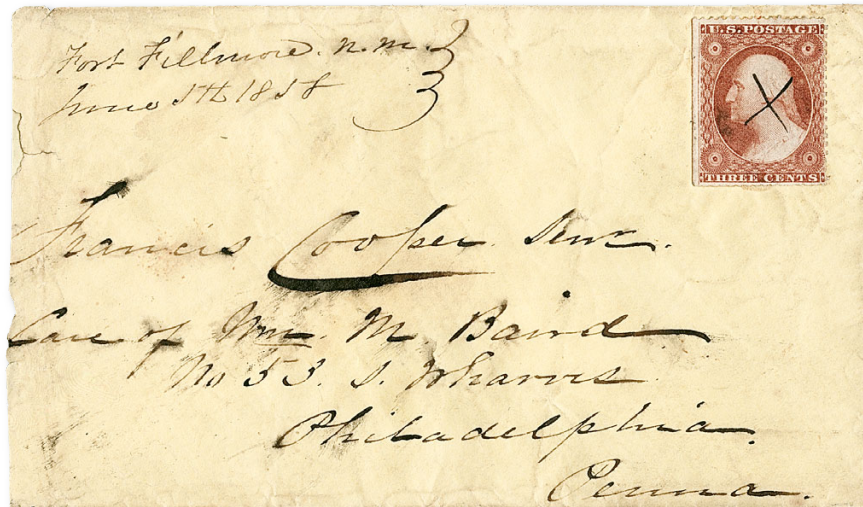 Fort Fillmore. N. M.
June 5th 1858
U.S. POSTAGE
THREE CENTS
Francis Cooper Senr.
Care of Wm. M. Baird
No 53. S. Wharves
Philadelphia.
Penna.